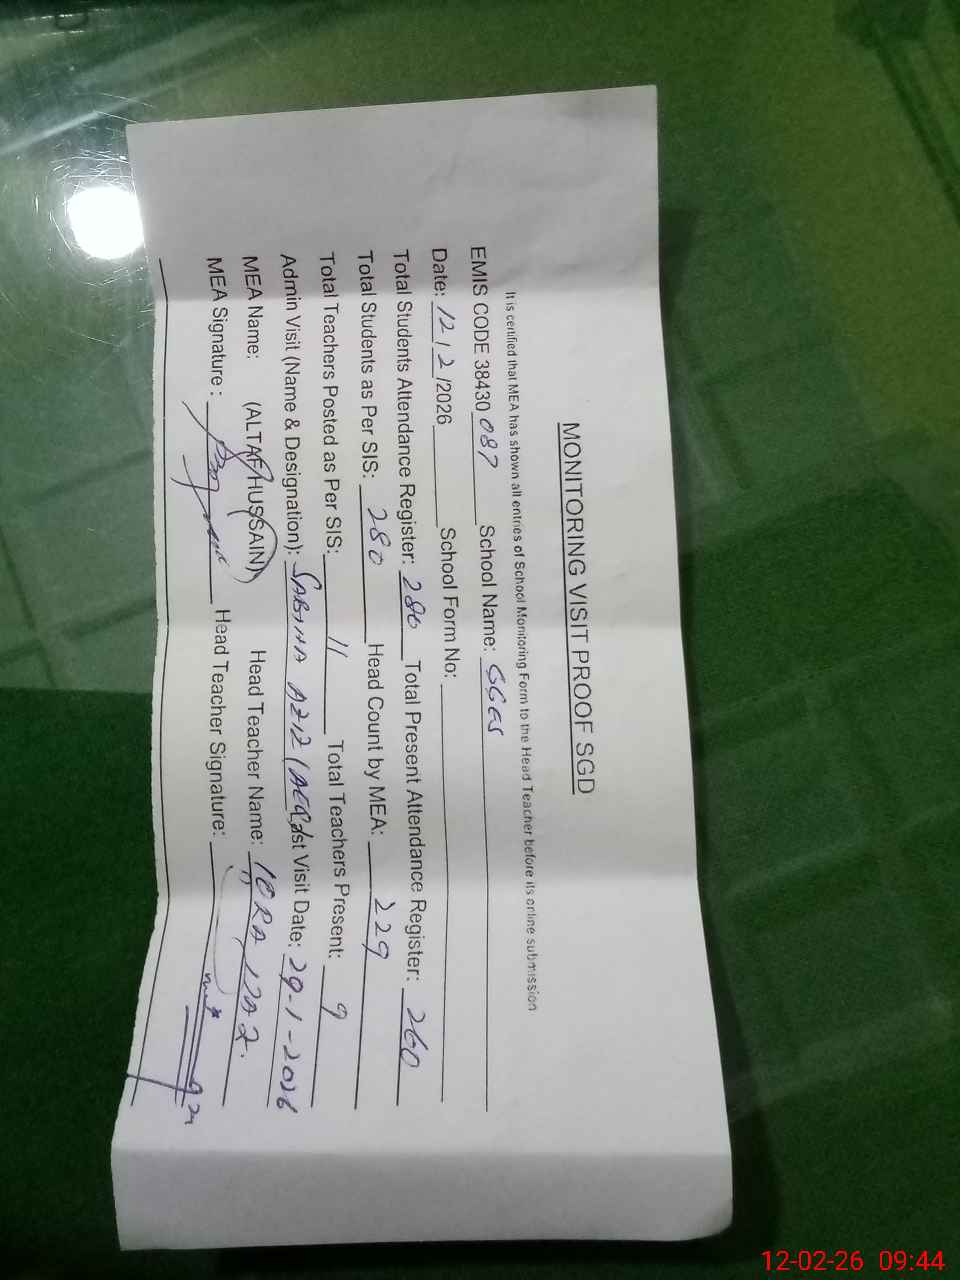 MONITORING VISIT PROOF SGD
It is certified that MEA has shown all entries of School Monitoring Form to the Head Teacher before its online submission
EMIS CODE 38430 087 School Name: GGES
Date: 12/2/2026 School Form No:
Total Students Attendance Register: 280 Total Present Attendance Register: 260
Total Students as Per SIS: 280 Head Count by MEA: 229
Total Teachers Posted as Per SIS: 11 Total Teachers Present: 9
Admin Visit (Name & Designation): SABINA AZIZ (AEO) last Visit Date: 29-1-2026
MEA Name: (ALTAF HUSSAIN) Head Teacher Name: IQRA IJAZ.
MEA Signature : Head Teacher Signature:
12-02-26 09:44